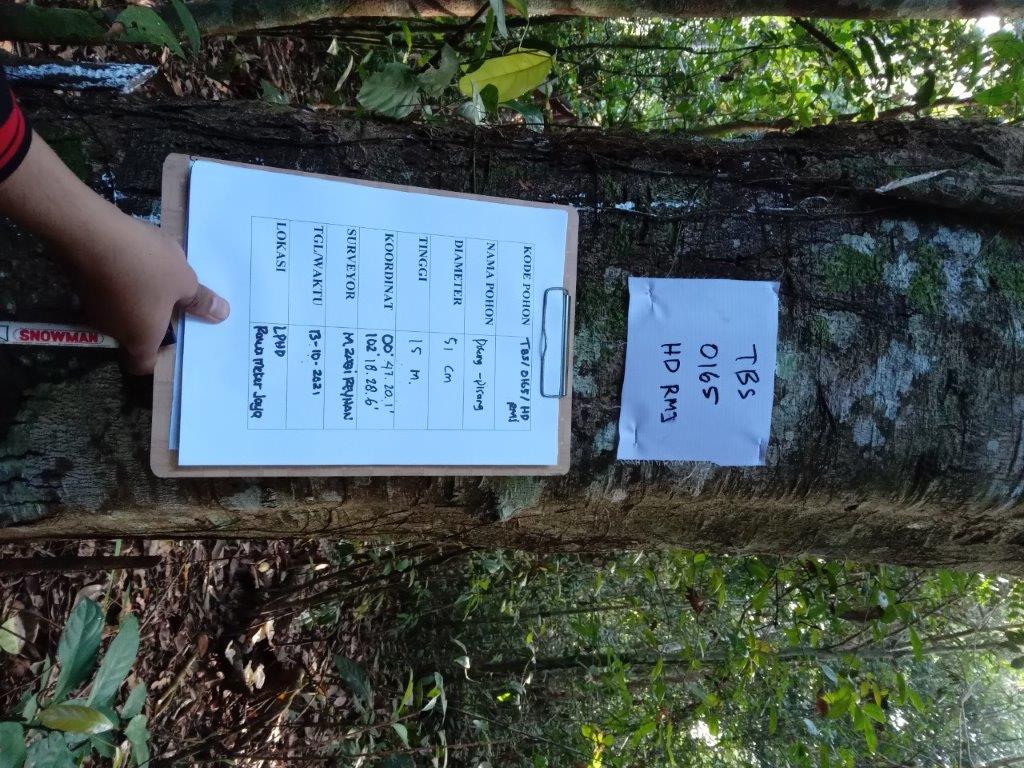 TBS
0165
HD RMJ
KODE POHON TBS/0165/HD
RMJ
NAMA POHON Pisang-pisang
DIAMETER 51 cm
TINGGI 15 M.
KOORDINAT 00° 47. 20. 1'
102° 18. 28. 6'
SURVEYOR M. ZABI REYHAN
TGL/WAKTU 13-10-2021
LOKASI LPHD
Rawa Mekar Jaya
SNOWMAN